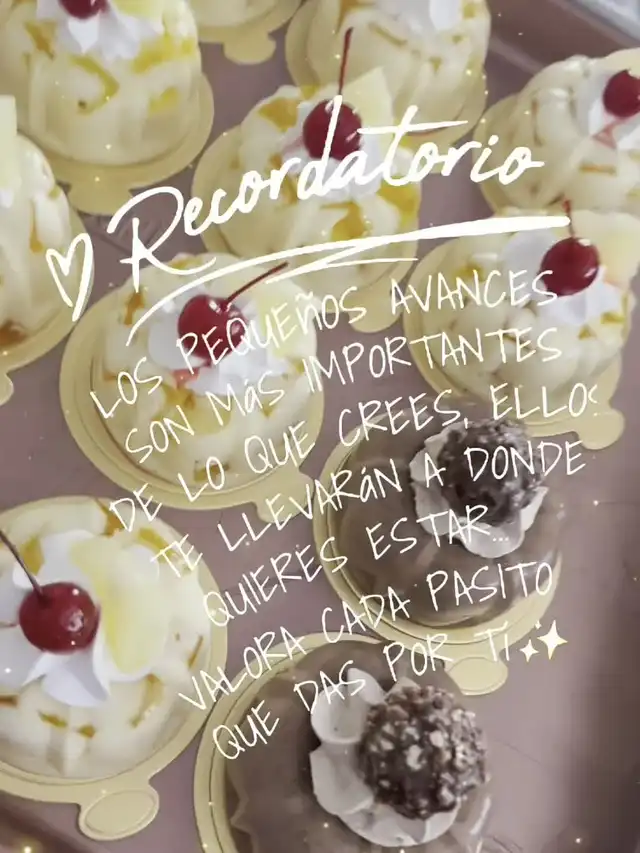 Recordatorio
LOS PEQUEÑOS AVANCES
SON MÁS IMPORTANTES
DE LO QUE CREES, ELLOS
TE LLEVARÁN A DONDE
QUIERES ESTAR...
VALORA CADA PASITO
QUE DAS POR TÍ